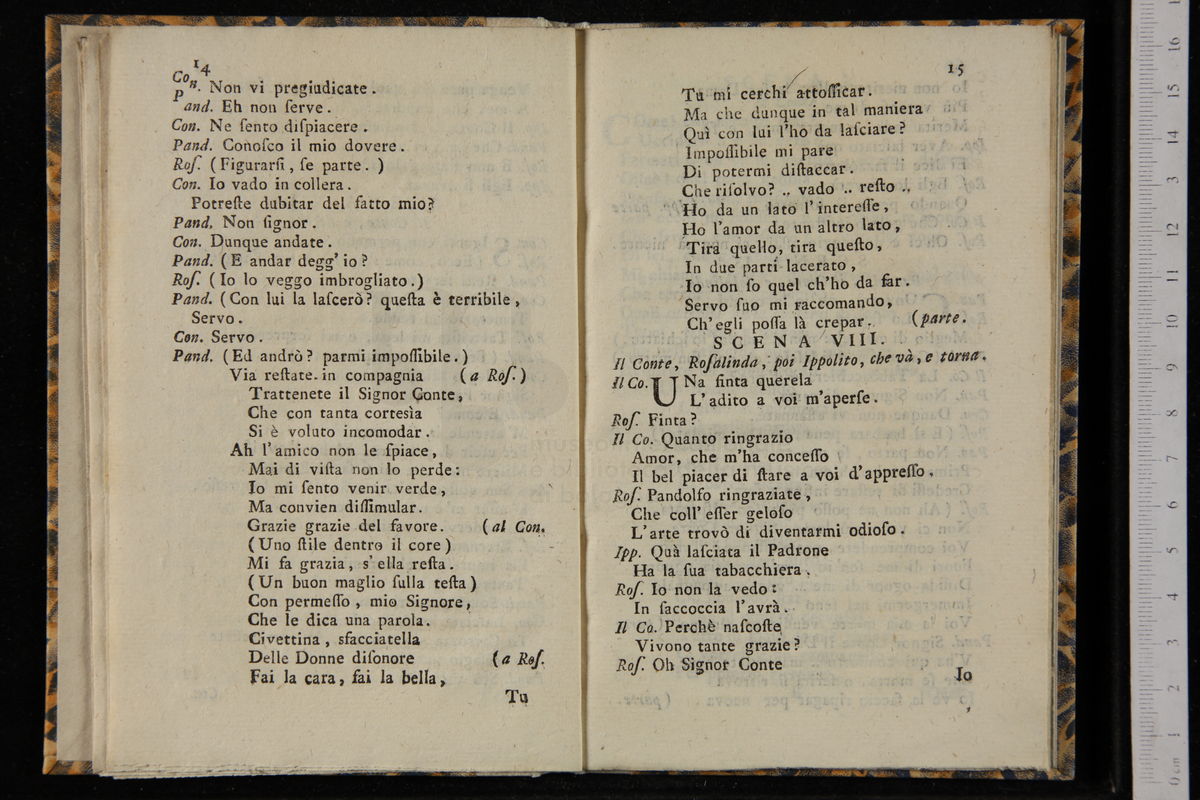 14
Con. Non vi pregiudicate.
Pand. Eh non ſerve.
Con. Ne ſento diſpiacere.
Pand. Conoſco il mio dovere.
Roſ. (Figurarſi, ſe parte. )
Con. Io vado in collera.
Potreſte dubitar del fatto mio?
Pand. Non ſignor.
Con. Dunque andate.
Pand. (E andar degg' io?
Roſ. (Io lo veggo imbrogliato.)
Pand. (Con lui la laſcerò? queſta è terribile,
Servo.
Con. Servo.
Pand. (Ed andrò? parmi impoſſibile.)
Via reſtate in compagnia (a Roſ.)
Trattenete il Signor Conte,
Che con tanta cortesìa
Si è voluto incomodar.
Ah l'amico non le ſpiace,
Mai di viſta non lo perde:
Io mi ſento venir verde,
Ma convien diſſimular.
Grazie grazie del favore. (al Con.
(Uno ſtile dentro il core)
Mi fa grazia, s' ella reſta.
(Un buon maglio ſulla teſta)
Con permeſſo, mio Signore,
Che le dica una parola.
Civettina, sfacciatella
Delle Donne diſonore (a Roſ.
Fai la cara, fai la bella,
Tu
15
Tu mi cerchi attoſſicar.
Ma che dunque in tal maniera
Quì con lui l'ho da laſciare?
Impoſſibile mi pare
Di potermi diſtaccar.
Che riſolvo? .. vado .. reſto ..
Ho da un lato l'intereſſe,
Ho l'amor da un altro lato,
Tira quello, tira queſto,
In due parti lacerato,
Io non ſo quel ch'ho da far.
Servo ſuo mi raccomando,
Ch'egli poſſa là crepar. (parte.
SCENA VIII.
Il Conte, Roſalinda, poi Ippolito, che và, e torna.
Il Co. UNa finta querela
L'adito a voi m'aperſe.
Roſ. Finta?
Il Co. Quanto ringrazio
Amor, che m'ha conceſſo
Il bel piacer di ſtare a voi d'appreſſo.
Roſ. Pandolfo ringraziate,
Che coll' eſſer geloſo
L'arte trovò di diventarmi odioſo.
Ipp. Quà laſciata il Padrone
Ha la ſua tabacchiera.
Roſ. Io non la vedo:
In ſaccoccia l'avrà.
Il Co. Perchè naſcoſte
Vivono tante grazie?
Roſ. Oh Signor Conte
Io